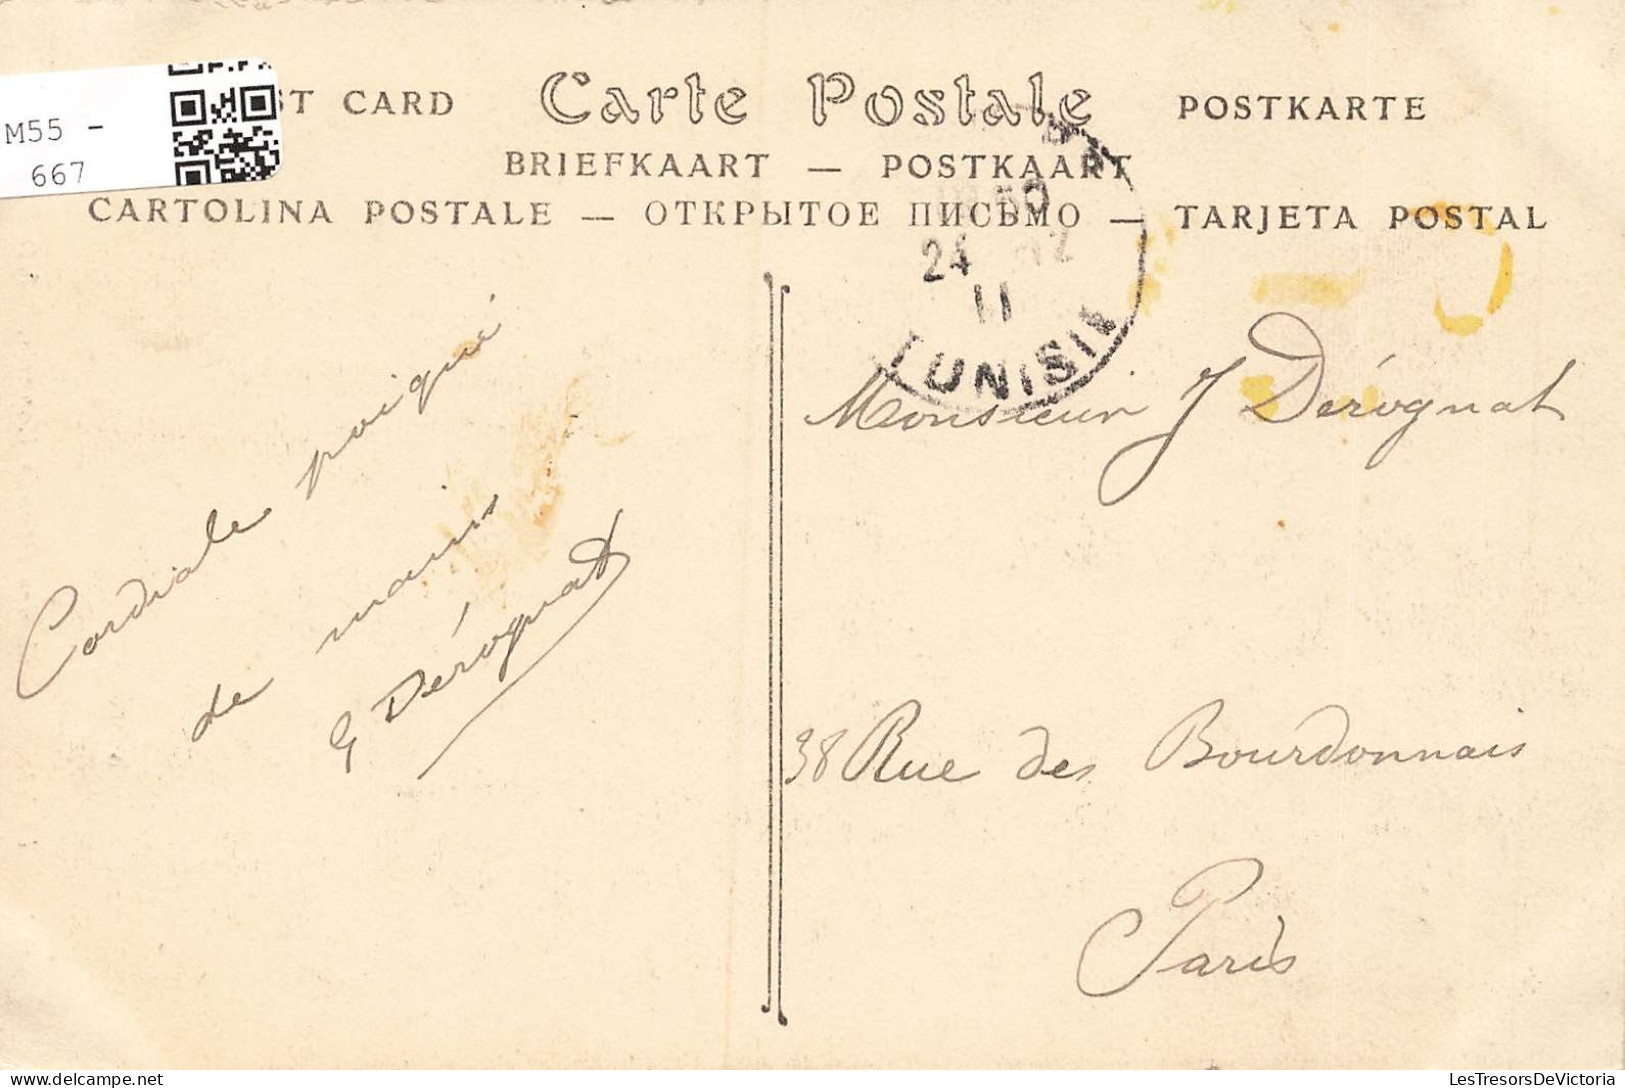 M55 -
667
ST CARD
Carte Postale
POSTKARTE
BRIEFKAART — POSTKAART
CARTOLINA POSTALE — ОТКРЫТОЕ ПИСЬМО — TARJETA POSTAL
24
11
TUNISIE
Cordiale poigné
de mains
G Dérognat
Monsieur J Dérognat
38 Rue des Bourdonnais
Paris
LesTresorsDeVictoria